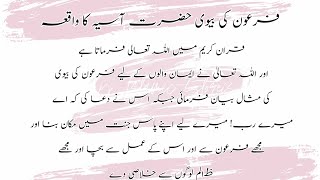 فرعون کی بیوی حضرت آسیہ کا واقعہ
قرآن کریم میں اللہ تعالی فرماتا ہے
اور اللہ تعالیٰ نے ایمان والوں کے لیے فرعون کی بیوی
کی مثال بیان فرمائی جبکہ اس نے دعا کی کہ اے
میرے رب! میرے لیے اپنے پاس جنت میں مکان بنا اور
مجھے فرعون سے اور اس کے عمل سے بچا اور مجھے
ظالم لوگوں سے خلاصی دے